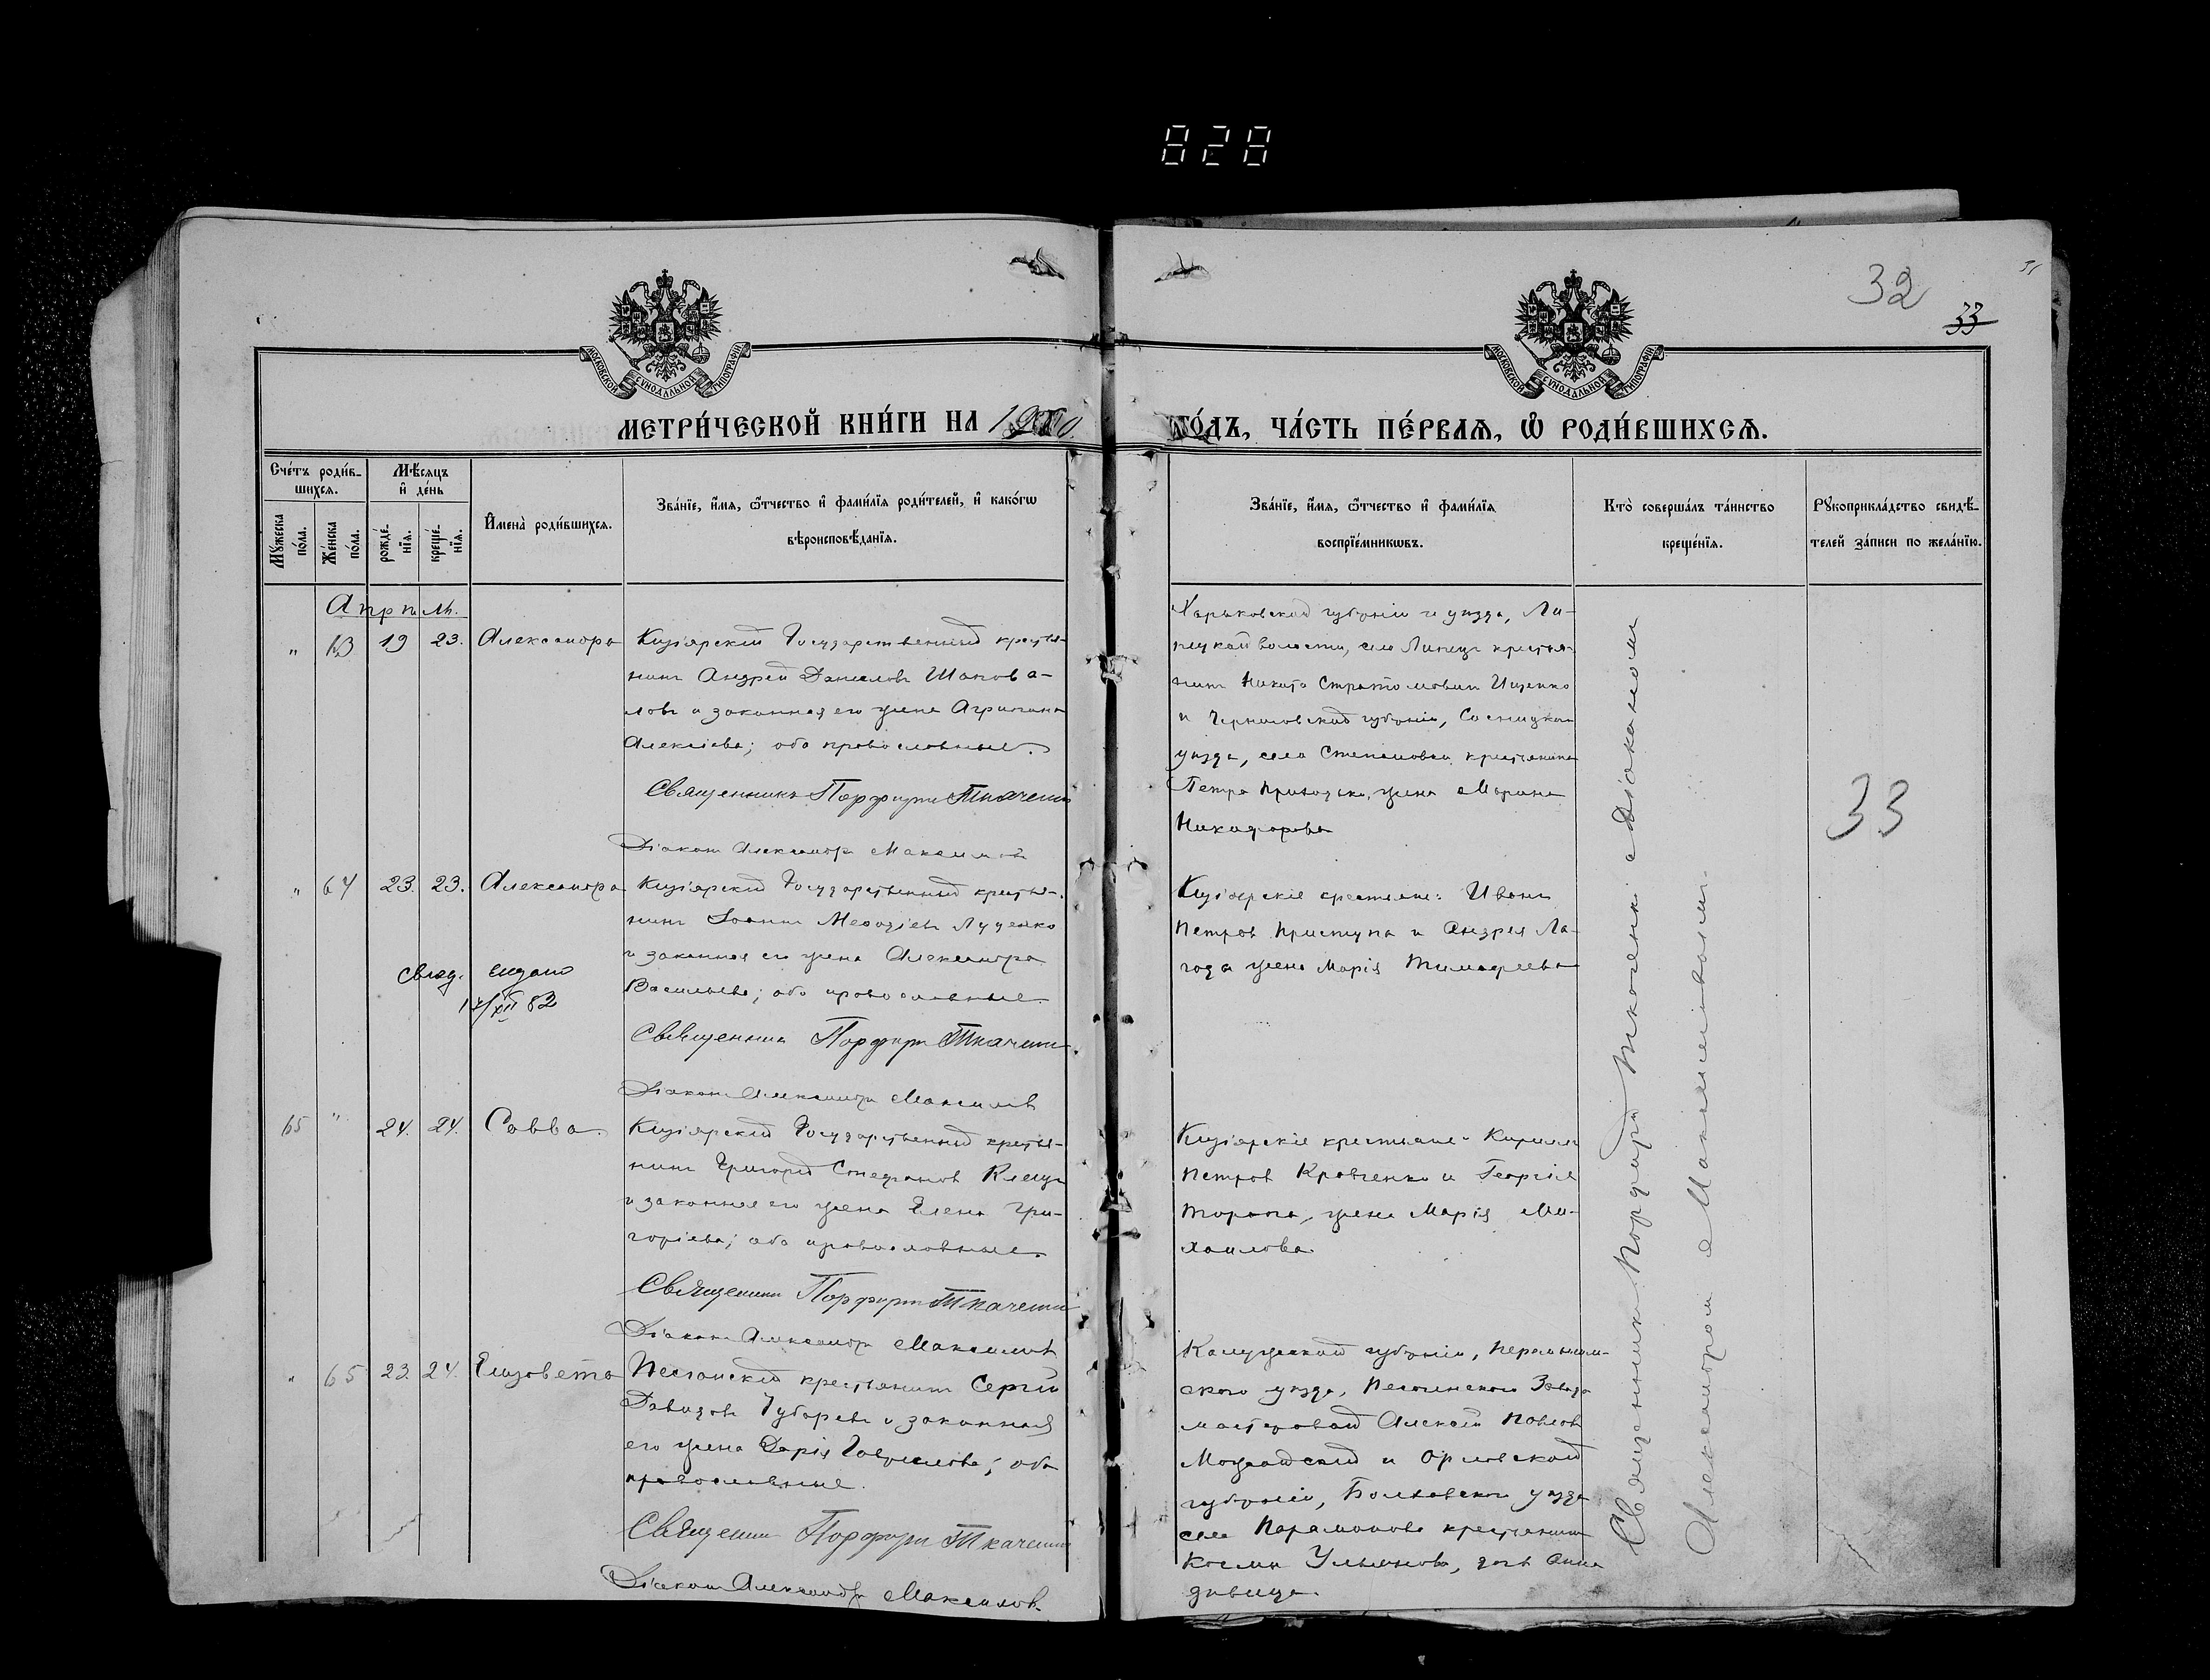 828
32
33
МОСКОВСКОЙ СѴНОДАЛЬНОЙ ТИПОГРАФІИ
МОСКОВСКОЙ СѴНОДАЛЬНОЙ ТИПОГРАФІИ
МЕТРИ́ЧЕСКОЙ КНИ́ГИ НА
ГО́ДЪ, ЧА́СТЬ ПЕ́РВАЯ, Ѡ РОДИ́ВШИХСЯ.
Сче́тъ роди́в-
шихся.
Мѣ́сяцъ
и҆ де́нь
Мꙋ́жеска
по́ла.
Же́нска
по́ла.
рожде́-
нїя.
креще́-
нїя.
И҆мена̀ роди́вшихся.
Зва́нїе, и҆́мя, ѻ҆́тчество и҆ фами́лїя роди́телей, и҆ како́гѡ
вѣроисповѣ́данїя.
Зва́нїе, и҆́мя, ѻ҆́тчество и҆ фами́лїя
воспрїе́мникѡвъ.
Кто̀ соверша́лъ та́инство
креще́нїя.
Рꙋкоприкла́дство свидѣ́-
телей за́писи по жела́нїю.
Апрѣль.
" 63 19 23. Александра
Кизіярскій Государственный крестья-
нинъ Андрей Даниловъ Шапова-
ловъ и законная его жена Агрипина
Алексіева; оба православные.
Священникъ Порфирій Ткаченко
Діаконъ Александръ Максимовъ
Харьковской губерніи и уѣзда, Ли-
пецкой волости, села Липецъ крестья-
нинъ Никита Ищенко
и Черниговской губерніи, Сосницкаго
уѣзда, села Степановки крестьянина
Петра Приходько, жена Марина
Никифорова
33
" 64 23. 23. Александра
Кизіярскій Государственный крестья-
нинъ Іоаннъ Меѳодіевъ Луценко
и законная его жена Александра
Васильева; оба православные.
Священникъ Порфирій Ткаченко
Діаконъ Александръ Максимовъ
свид. видано
17/XII 82
Кизіярскіе крестьяне: Иванъ
Петровъ Приступа и Андрея Ла-
года жена Марія Тимофеева
65 " 24. 24. Савва.
Кизіярскій Государственный крестья-
нинъ Григорій Стефановъ Клещъ
и законная его жена Елена Гри-
горіева; оба православные.
Священникъ Порфирій Ткаченко
Діаконъ Александръ Максимовъ
Кизіярскіе крестьяне: Кириллъ
Петровъ Кравченко и Георгія
жена Марія Ми-
хаилова.
" 65 23. 24. Елизавета
крестьянинъ Сергій
Давидовъ Губаревъ и законная
его жена Дарія Гавриилова; оба
православные.
Священникъ Порфирій Ткаченко
Діаконъ Александръ Максимовъ
Калужской губерніи, Перемышль-
скаго уѣзда, Песоченскаго Завода
мастеровой Алексѣй Павловъ
и Орловской
губерніи, Болховскаго уѣзда
села Парамонова крестьянина
Космы Ульянова, дочь Анна
дѣвица.
Священникъ Порфирій Ткаченко съ Діакономъ
Александромъ Максимовымъ.